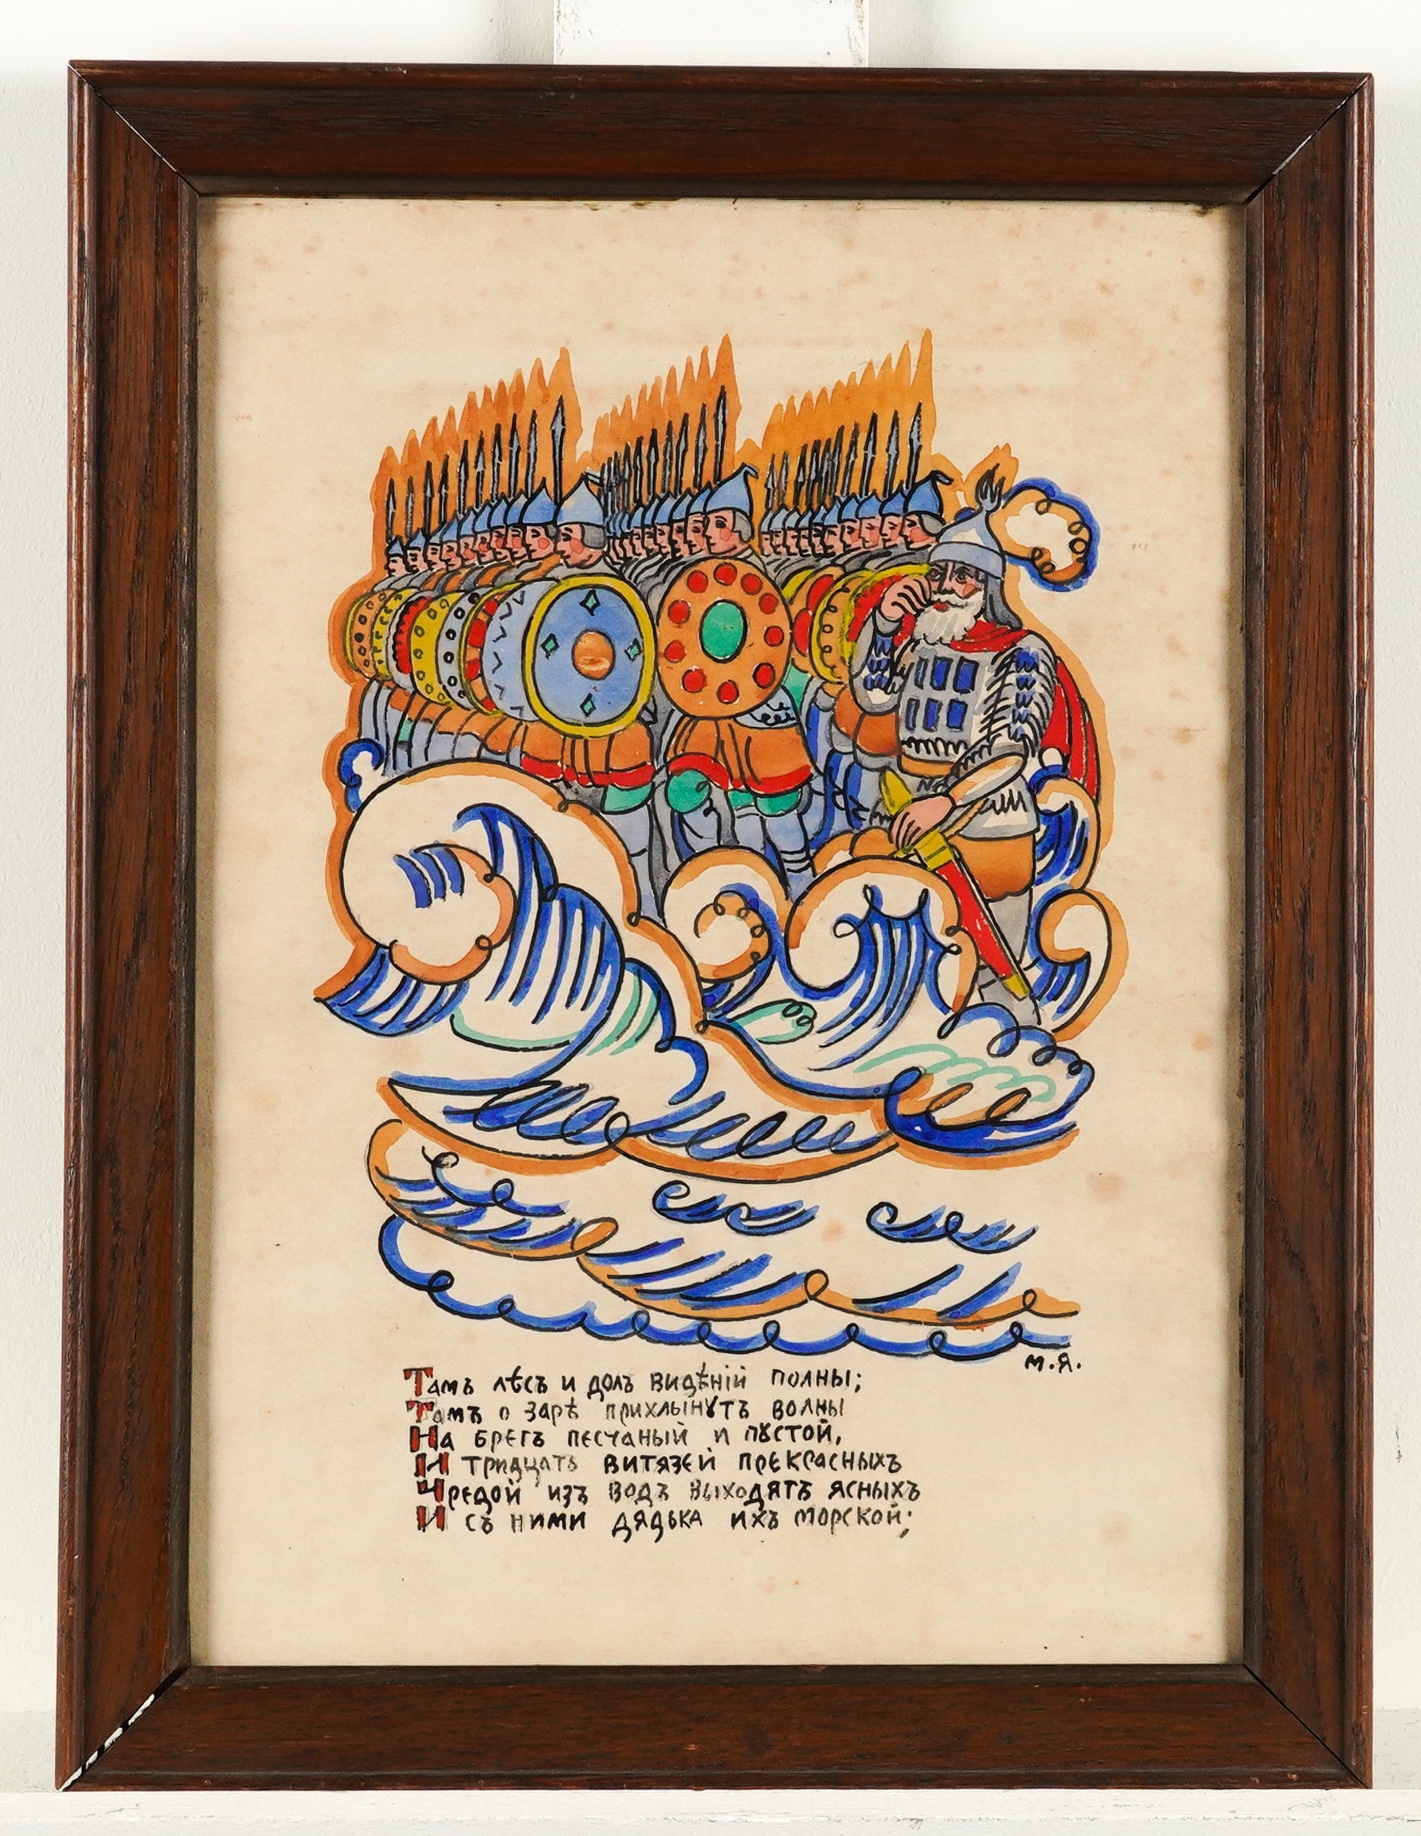 М.Я.
Тамъ лѣсъ и долъ видѣній полны;
Тамъ о зарѣ прихлынутъ волны
На брегъ песчаный и пꙋстой,
И тридцать витязей прекрасныхъ
Чредой изъ водъ выходятъ ясныхъ
И съ ними дядька ихъ морской;